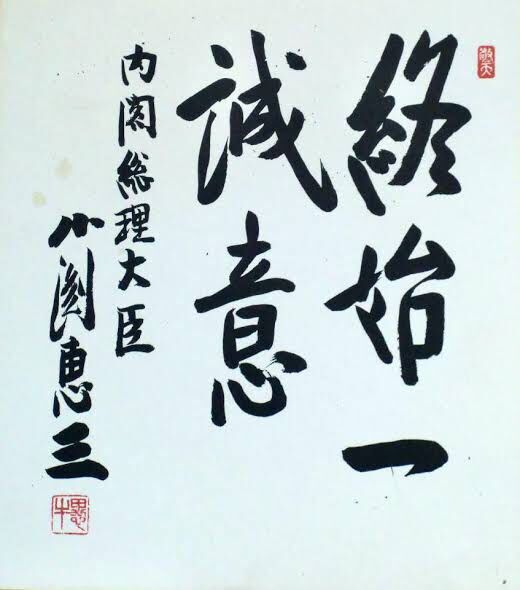 敬天
終始一
誠意
内閣総理大臣
小渕恵三